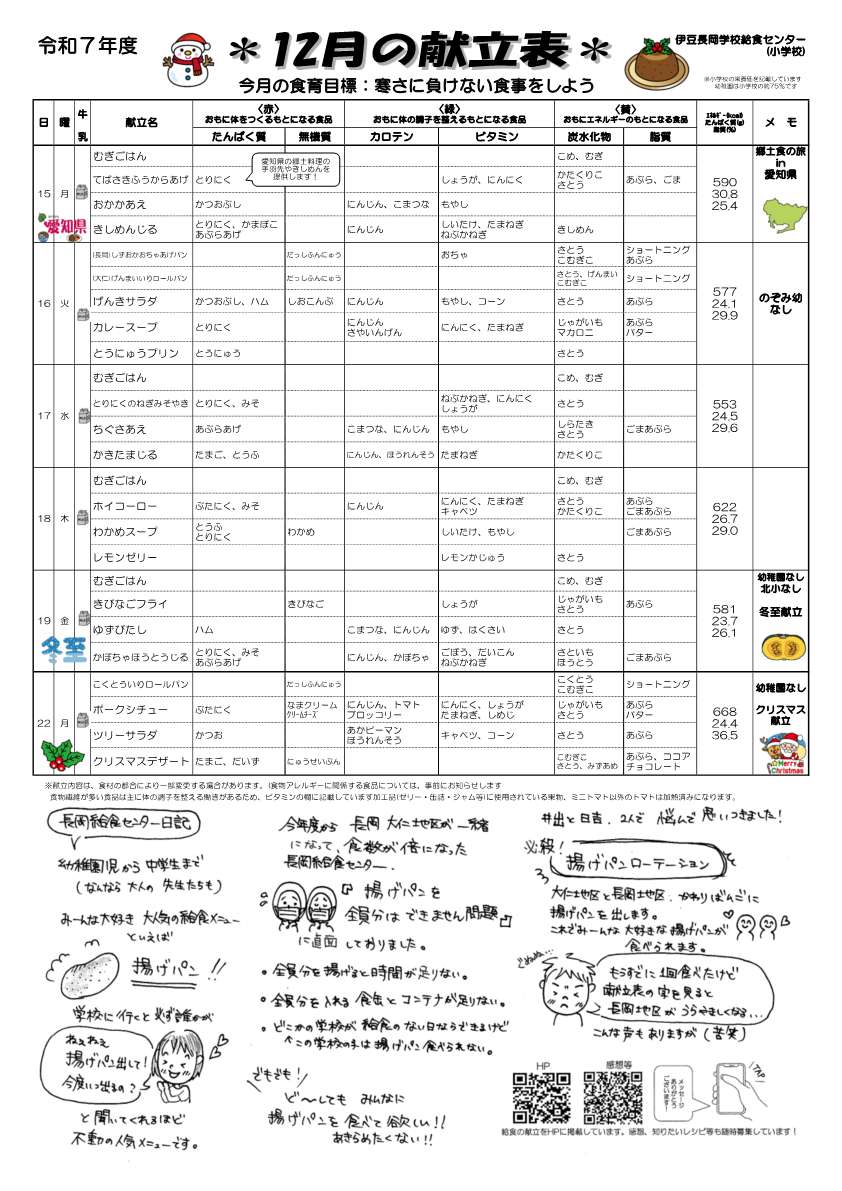 令和７年度
＊12月の献立表＊
伊豆長岡学校給食センター
(小学校)
今月の食育目標：寒さに負けない食事をしよう
※小学校の栄養価を記載しています
幼稚園は小学校の約75％です
日 曜 牛乳 献立名 〈赤〉おもに体をつくるもとになる食品 〈緑〉おもに体の調子を整えるもとになる食品 〈黄〉おもにエネルギーのもとになる食品 ｴﾈﾙｷﾞｰ(kcal) たんぱく質(g) 脂質(%) メ モ
たんぱく質 無機質 カロテン ビタミン 炭水化物 脂質
15 月
愛知県
むぎごはん こめ、むぎ
てばさきふうからあげ とりにく しょうが、にんにく かたくりこ さとう あぶら、ごま
愛知県の郷土料理の
手羽先やきしめんを
提供します！
おかかあえ かつおぶし にんじん、こまつな もやし
きしめんじる とりにく、かまぼこ あぶらあげ にんじん しいたけ、たまねぎ ねぶかねぎ きしめん
590
30.8
25.4
郷土食の旅
in
愛知県
16 火
(長岡)しずおかおちゃあげパン だっしふんにゅう おちゃ さとう こむぎこ ショートニング あぶら
(大仁)げんまいいりロールパン だっしふんにゅう さとう、げんまい こむぎこ ショートニング
げんきサラダ かつおぶし、ハム しおこんぶ にんじん もやし、コーン さとう あぶら
カレースープ とりにく にんじん さやいんげん にんにく、たまねぎ じゃがいも マカロニ あぶら バター
とうにゅうプリン とうにゅう さとう
577
24.1
29.9
のぞみ幼
なし
17 水
むぎごはん こめ、むぎ
とりにくのねぎみそやき とりにく、みそ ねぶかねぎ、にんにく しょうが さとう
ちぐさあえ あぶらあげ こまつな、にんじん もやし しらたき さとう ごまあぶら
かきたまじる たまご、とうふ にんじん、ほうれんそう たまねぎ かたくりこ
553
24.5
29.6
18 木
むぎごはん こめ、むぎ
ホイコーロー ぶたにく、みそ にんじん にんにく、たまねぎ キャベツ さとう かたくりこ あぶら ごまあぶら
わかめスープ とうふ とりにく わかめ しいたけ、もやし ごまあぶら
レモンゼリー レモンかじゅう さとう
622
26.7
29.0
19 金
冬至
むぎごはん こめ、むぎ
きびなごフライ きびなご しょうが じゃがいも さとう あぶら
ゆずびたし ハム こまつな、にんじん ゆず、はくさい さとう
かぼちゃほうとうじる とりにく、みそ あぶらあげ にんじん、かぼちゃ ごぼう、だいこん ねぶかねぎ さといも ほうとう ごまあぶら
581
23.7
26.1
幼稚園なし
北小なし
冬至献立
22 月
こくとういりロールパン だっしふんにゅう こくとう こむぎこ ショートニング
ポークシチュー ぶたにく なまクリーム ｸﾘｰﾑﾁｰｽﾞ にんじん、トマト ブロッコリー にんにく、しょうが たまねぎ、しめじ じゃがいも さとう あぶら バター
ツリーサラダ かつお あかピーマン ほうれんそう キャベツ、コーン さとう あぶら
クリスマスデザート たまご、だいず にゅうせいぶん こむぎこ さとう、みずあめ あぶら、ココア チョコレート
668
24.4
36.5
幼稚園なし
クリスマス
献立
Merry
Christmas
※献立内容は、食材の都合により一部変更する場合があります。(食物アレルギーに関係する食品については、事前にお知らせします
食物繊維が多い食品は主に体の調子を整える働きがあるため、ビタミンの欄に記載しています加工品(ゼリー・缶詰・ジャム等)に使用されている果物、ミニトマト以外のトマトは加熱済みになります。
長岡給食センター日記
幼稚園児から中学生まで
(なんなら大人の先生たちも)
みーんな大好き 大人気の給食メニュー
といえば
揚げパン!!
学校に行くと必ず誰かが
ねぇねぇ
揚げパン出して!
今度いつ出るの?
と聞いてくれるほど
不動の人気メニューです。
今年度から 長岡 大仁地区が一緒
になって、食数が倍になった
長岡給食センター。
『揚げパンを
全員分はできません問題』
に直面しておりました。
・全員分を揚げると時間が足りない。
・全員分を入れる食缶とコンテナが足りない。
・どこかの学校が給食のない日ならできるけど
この学校の子は揚げパン食べられない。
でもでも!
ど〜しても みんなに
揚げパンを食べて欲しい!!
あきらめたくない!!
井出と日吉、2人で 悩んで思いつきました!
必殺!
揚げパンローテーション
大仁地区と長岡地区、かわりばんこに
揚げパンを出します。
これでみーんな大好きな揚げパンが
食べられます。
ぐぬぬ…
もうすでに1回食べたけど
献立表の字を見ると
長岡地区がうらやましくなる…
こんな声もありますが(苦笑)
HP
感想等
メッセージ
ありがとう
ございます！
給食の献立をHPに掲載しています。感想、知りたいレシピ等も随時募集しています！